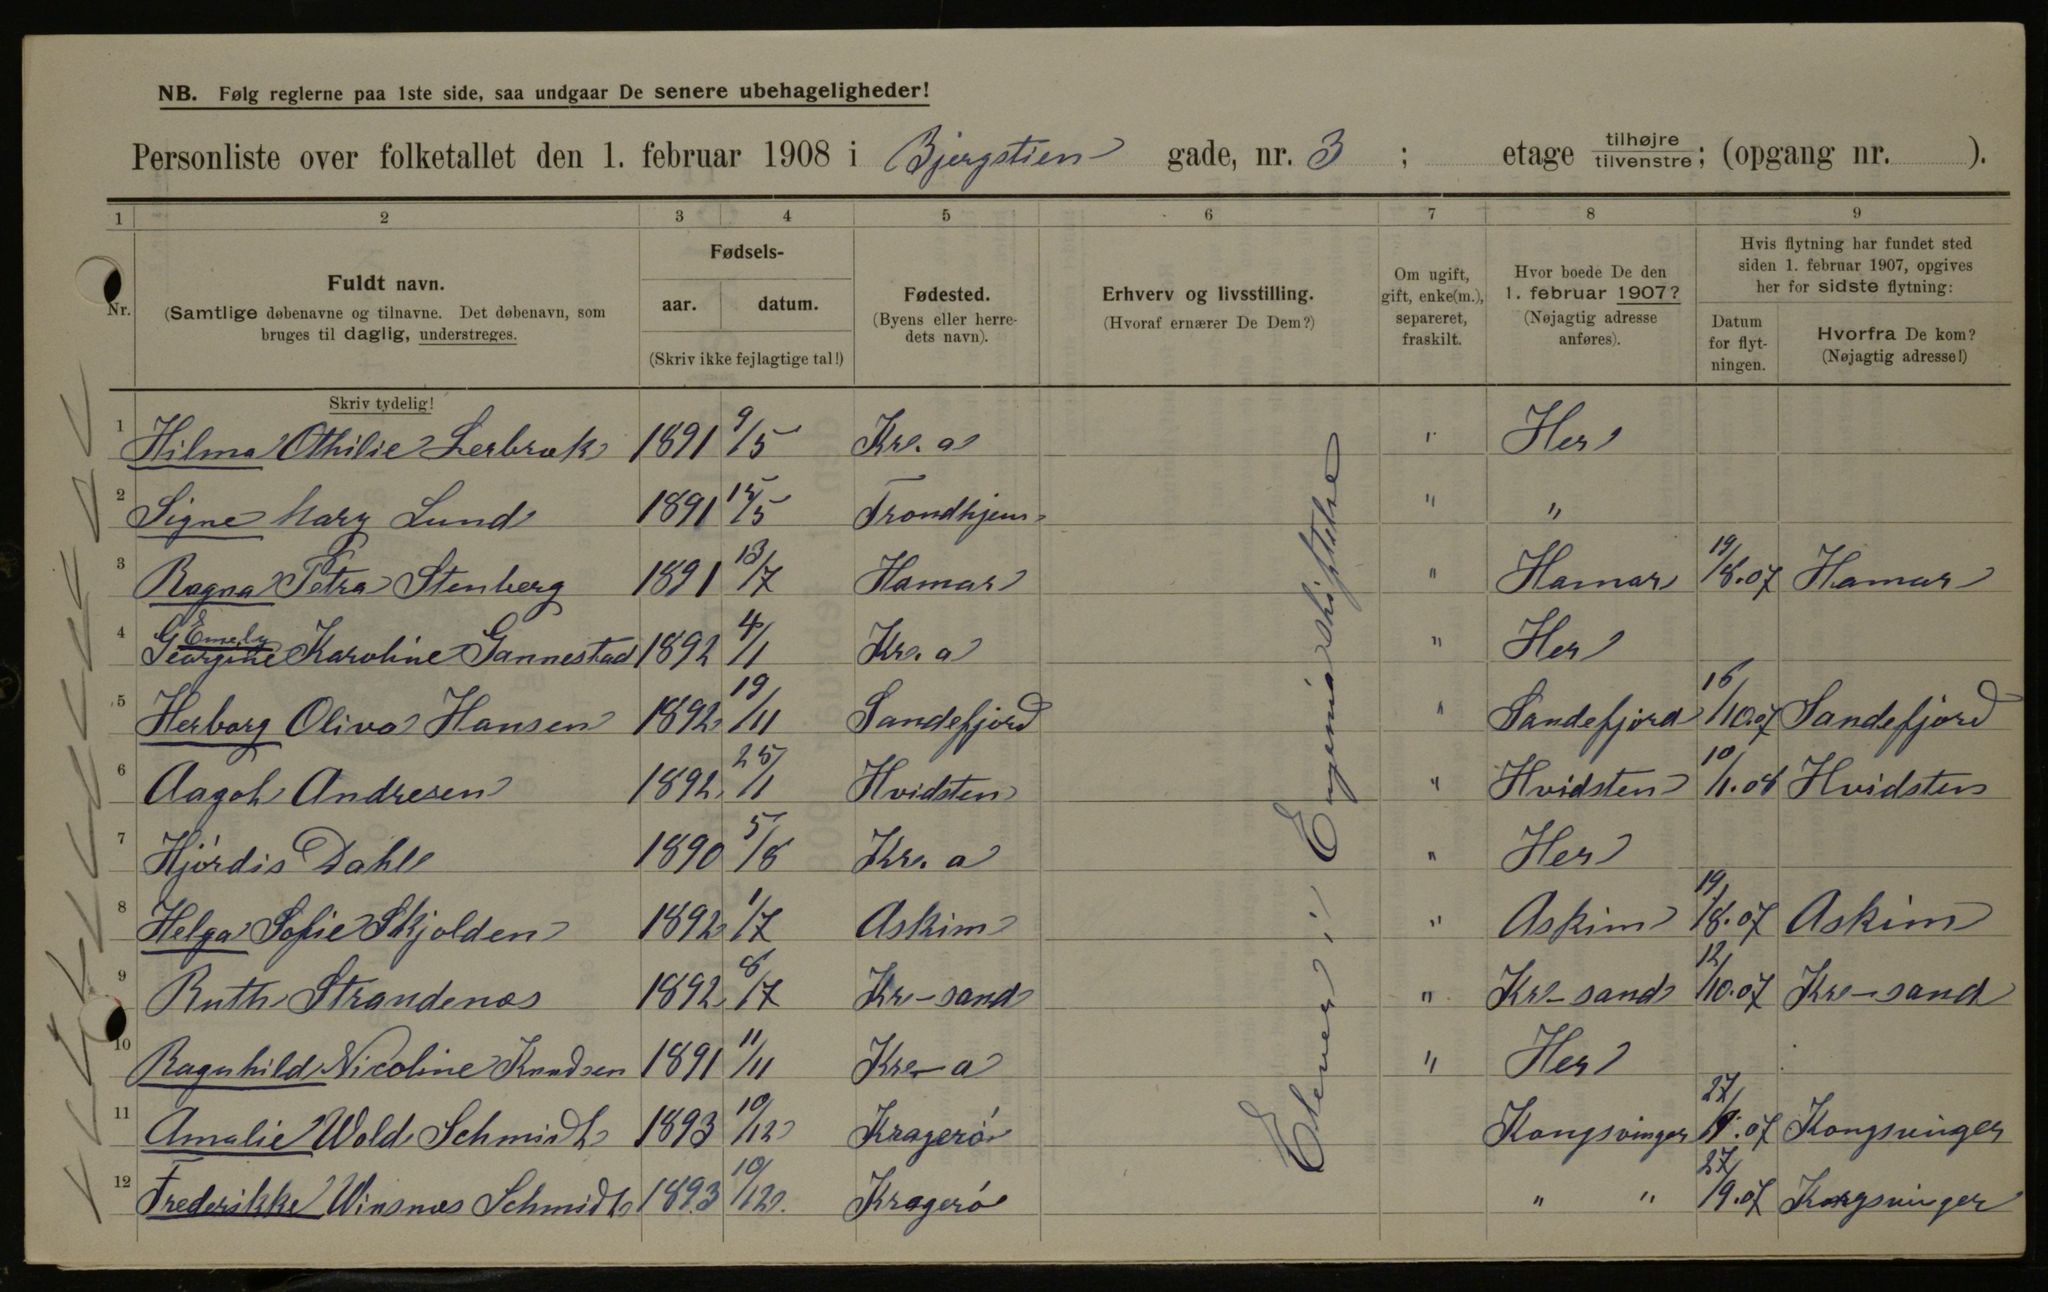 NB. Følg reglerne paa 1ste side, saa undgaar De senere ubehageligheder!
Personliste over folketallet den 1. februar 1908 i Bjergstien gade, nr. 3 ; etage tilhøjre tilvenstre; (opgang nr. ).
1 2 3 4 5 6 7 8 9
Nr.
Fuldt navn.
(Samtlige døbenavne og tilnavne. Det døbenavn, som
bruges til daglig, understreges.
Skriv tydelig!
Fødsels-
aar. datum.
(Skriv ikke fejlagtige tal!)
Fødested.
(Byens eller herre-
dets navn).
Erhverv og livsstilling.
(Hvoraf ernærer De Dem?)
Om ugift,
gift, enke(m.),
separeret,
fraskilt.
Hvor boede De den
1. februar 1907?
(Nøjagtig adresse
anføres).
Hvis flytning har fundet sted
siden 1. februar 1907, opgives
her for sidste flytning:
Datum
for flyt-
ningen.
Hvorfra De kom?
(Nøjagtig adresse!)
1 Hilma Othilie Lerbræk 1891 9/5 Kr.a " Her
2 Signe Mary Lund 1891 15/5 Trondhjem " "
3 Ragna Petra Stenberg 1891 13/7 Hamar " Hamar 19/8.07 Hamar
4 Georgine Emely Karoline Gannestad 1892 4/1 Kr.a " Her
5 Herborg Oliva Hansen 1892 19/11 Sandefjord " Sandefjord 16/10.07 Sandefjord
6 Aagot Andresen 1892 25/1 Hvidsten " Hvidsten 10/1.08 Hvidsten
7 Hjørdis Dahl 1890 5/8 Kr.a " Her
8 Helga Sofie Skjolden 1892 1/7 Askim " Askim 19/8.07 Askim
9 Ruth Strandenæs 1892 8/7 Kr-sand " Kr-sand 12/10.07 Kr-sand
10 Ragnhild Nicoline Knudsen 1891 11/11 Kr-a " Her
11 Amalie Wold Schmidt 1893 10/12 Kragerø Kongsvinger 27/9.07 Kongsvinger
12 Frederikke Winsnæs Schmidt 1893 10/12. Kragerø " " 27/9.07 Kongsvinger
Elever i Eugeniaskiftelse